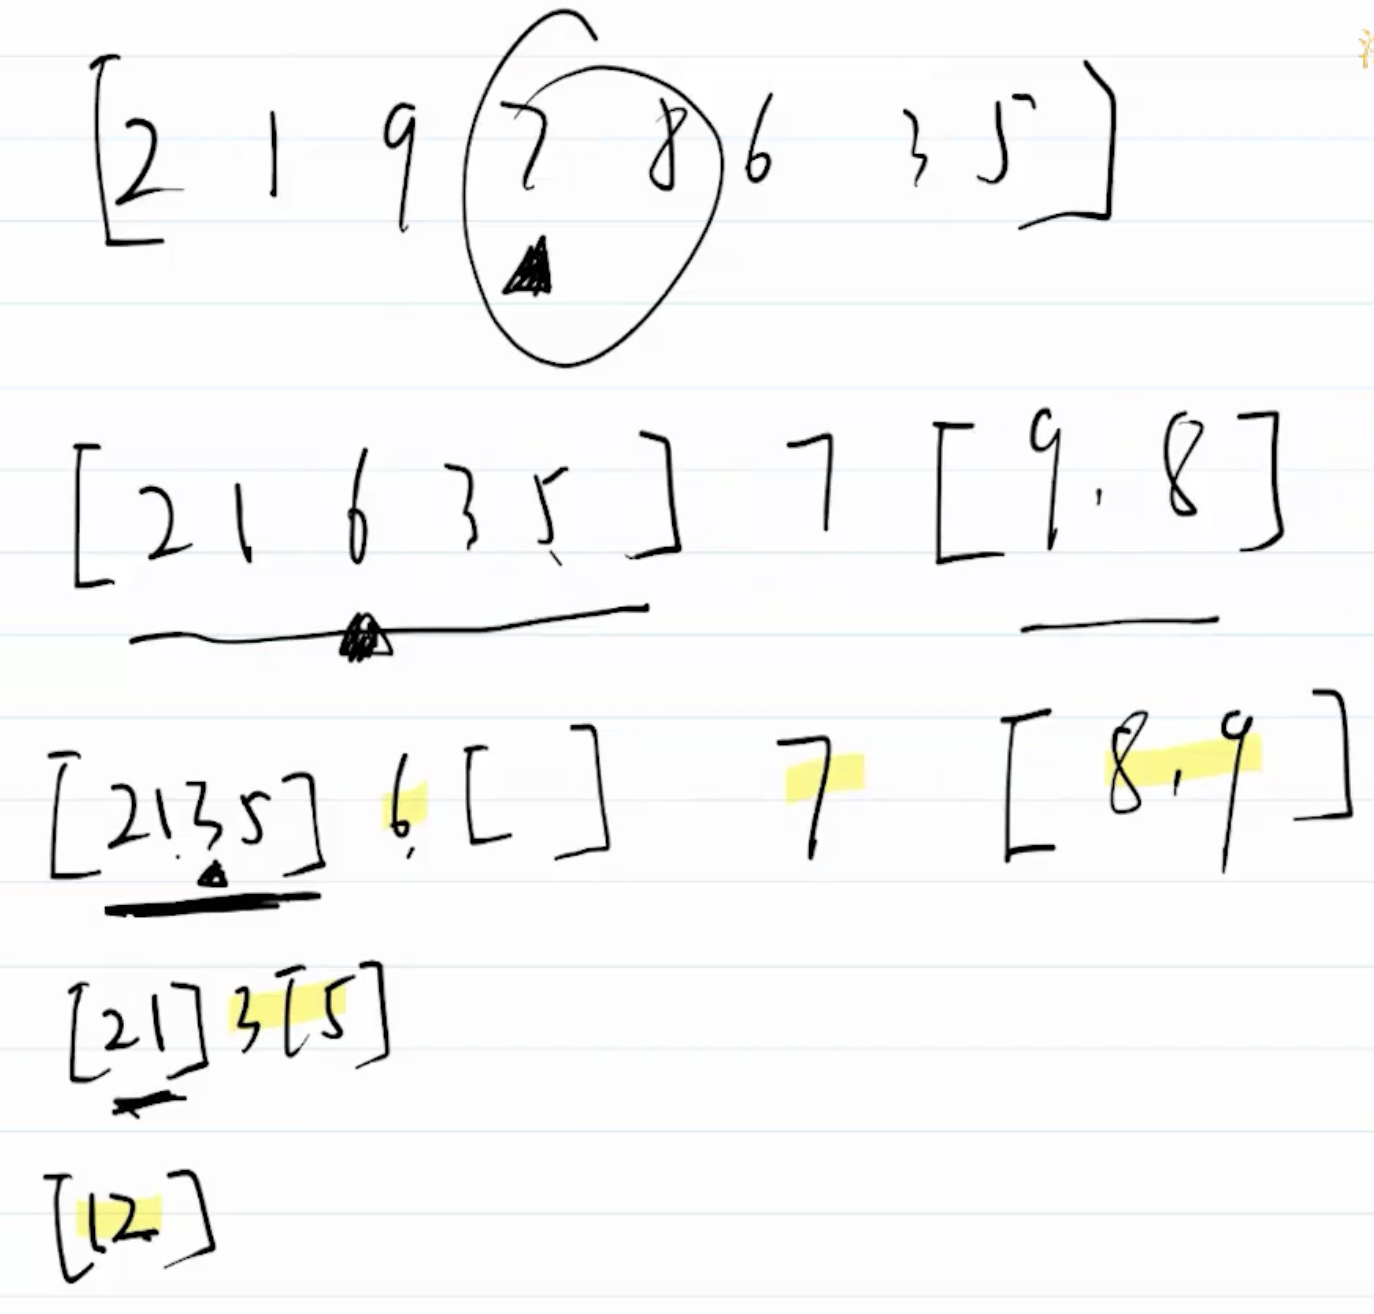 [2 1 9 7 8 6 3 5]
[2 1 6 3 5] 7 [9, 8]
[2135] 6 [ ] 7 [8, 9]
[21] 3 [5]
[12]